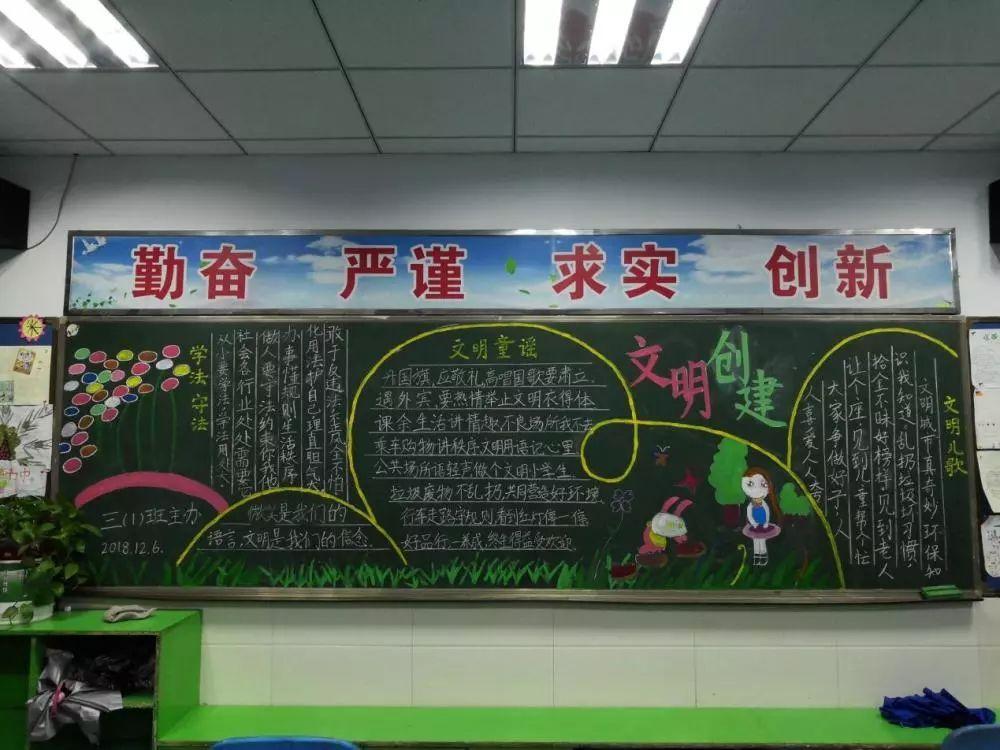 勤奋 严谨 求实 创新
学法守法
从小要学法守法用处大
社会各行业处处需要它
做人要守法约束你我他
办事懂规则生活秩序
化用法护自己理直胆气
敢于反违法歪风全不怕
三(1)班主办
2018.12.6.
微笑是我们的
语言,文明是我们的信念
文明童谣
升国旗,应敬礼,高唱国歌要肃立
遇外宾,要热情举止文明衣得体
课余生活讲情趣不良场所我不去
乘车购物讲秩序文明用语记心里
公共场所语轻声做个文明小学生
垃圾废物不乱扔共同营造好环境
行车走路守规则看到红灯停一停
好品行,一养成,终生得益受欢迎
文明创建
文明儿歌
文明城市真奇妙,环保知
识我知道,乱扔垃圾坏习惯,
拾金不昧好榜样,见到老人
让个座,见到儿童帮个忙
大家争做好子人
人喜爱人人夸